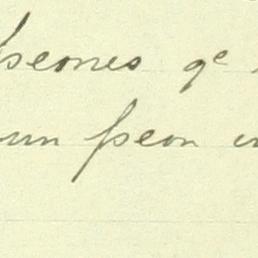 pseones qe
un pseon